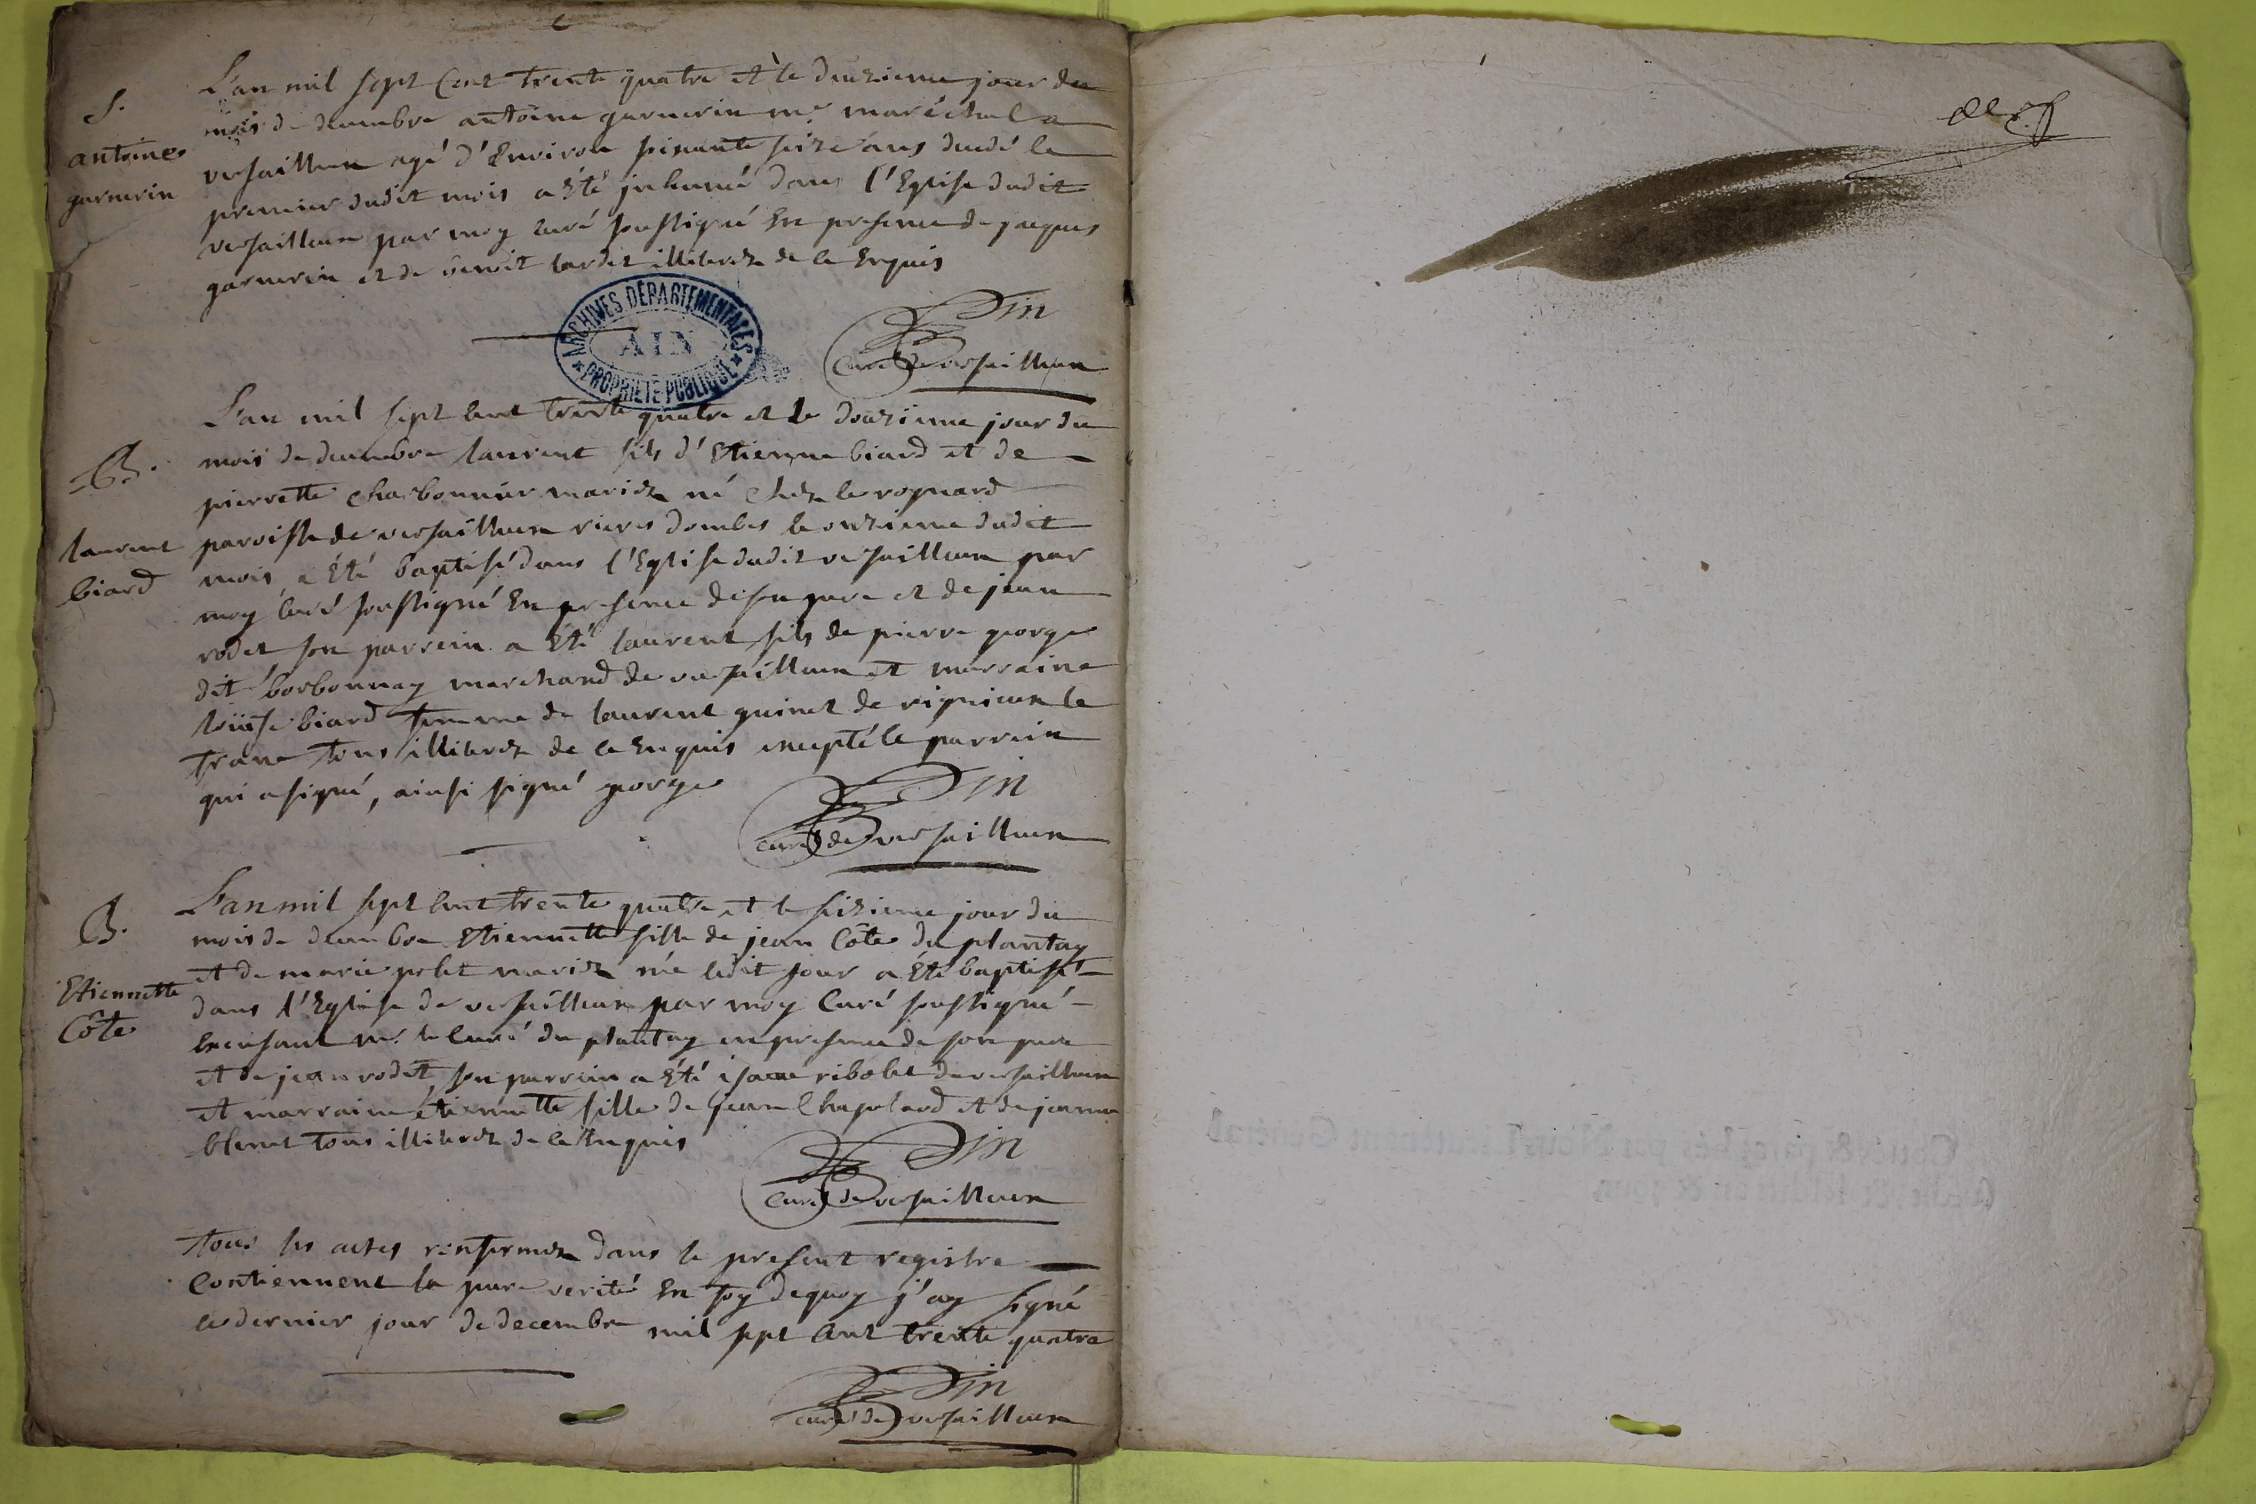 S.
antoine
garnerin
L'an mil sept Cent trente quatre et le deuzieme jour du
mois de decembre antoine garnerin me marechal a
versailleux agé d'Environ soixante seize ans decedé le
premier dudit mois a Eté inhumé dans l'Eglise dudit
versailleux par moy curé soussigné En presence de jacques
garnerin et de benoit tardet illiterez de ce Enquis
ARCHIVES DÉPARTEMENTALES
AIN
PROPRIÉTÉ PUBLIQUE
curé de versailleux
B.
laurent
biard
L'an mil sept cent trente quatre et le douzieme jour du
mois de decembre laurent fils d'Etienne biard et de
pierrette Charbonnier mariez né Chez le rognard
paroisse de versailleux riere dombes le onzieme dudit
mois a Eté baptisé dans l'Eglise dudit versailleux par
moy curé soussigné En presence de son pere et de jean
rodet son parrein a Eté laurent fils de pierre george
dit borbonnay marchand de versailleux et marraine
louise biard femme de laurent guinet de rignieux le
franc tous illiterez de ce Enquis excepté le parrein
qui a signé, ainsi signé george
curé de versailleux
B.
Etiennette
Côte
L'an mil sept cent trente quatre et le seizieme jour du
mois de decembre Etiennette fille de jean Côte du plantay
et de marie polet mariez née ledit jour a Eté baptisé
dans l'Eglise de versailleux par moy Curé soussigné
En absent mr le Curé du plantay en presence de son pere
et de jean rodet, son parrein a Eté isaac ribolet de versailleux
et marraine Etiennette fille de jean Chapelard et de jeanne
blenet tous illiterez de ce Enquis
curé de versailleux
tous les actes renfermez dans le present registre
Contiennent la pure verité En foy dequoy j'ay signé
le dernier jour de decembre mil sept cent trente quatre
curé de versailleux